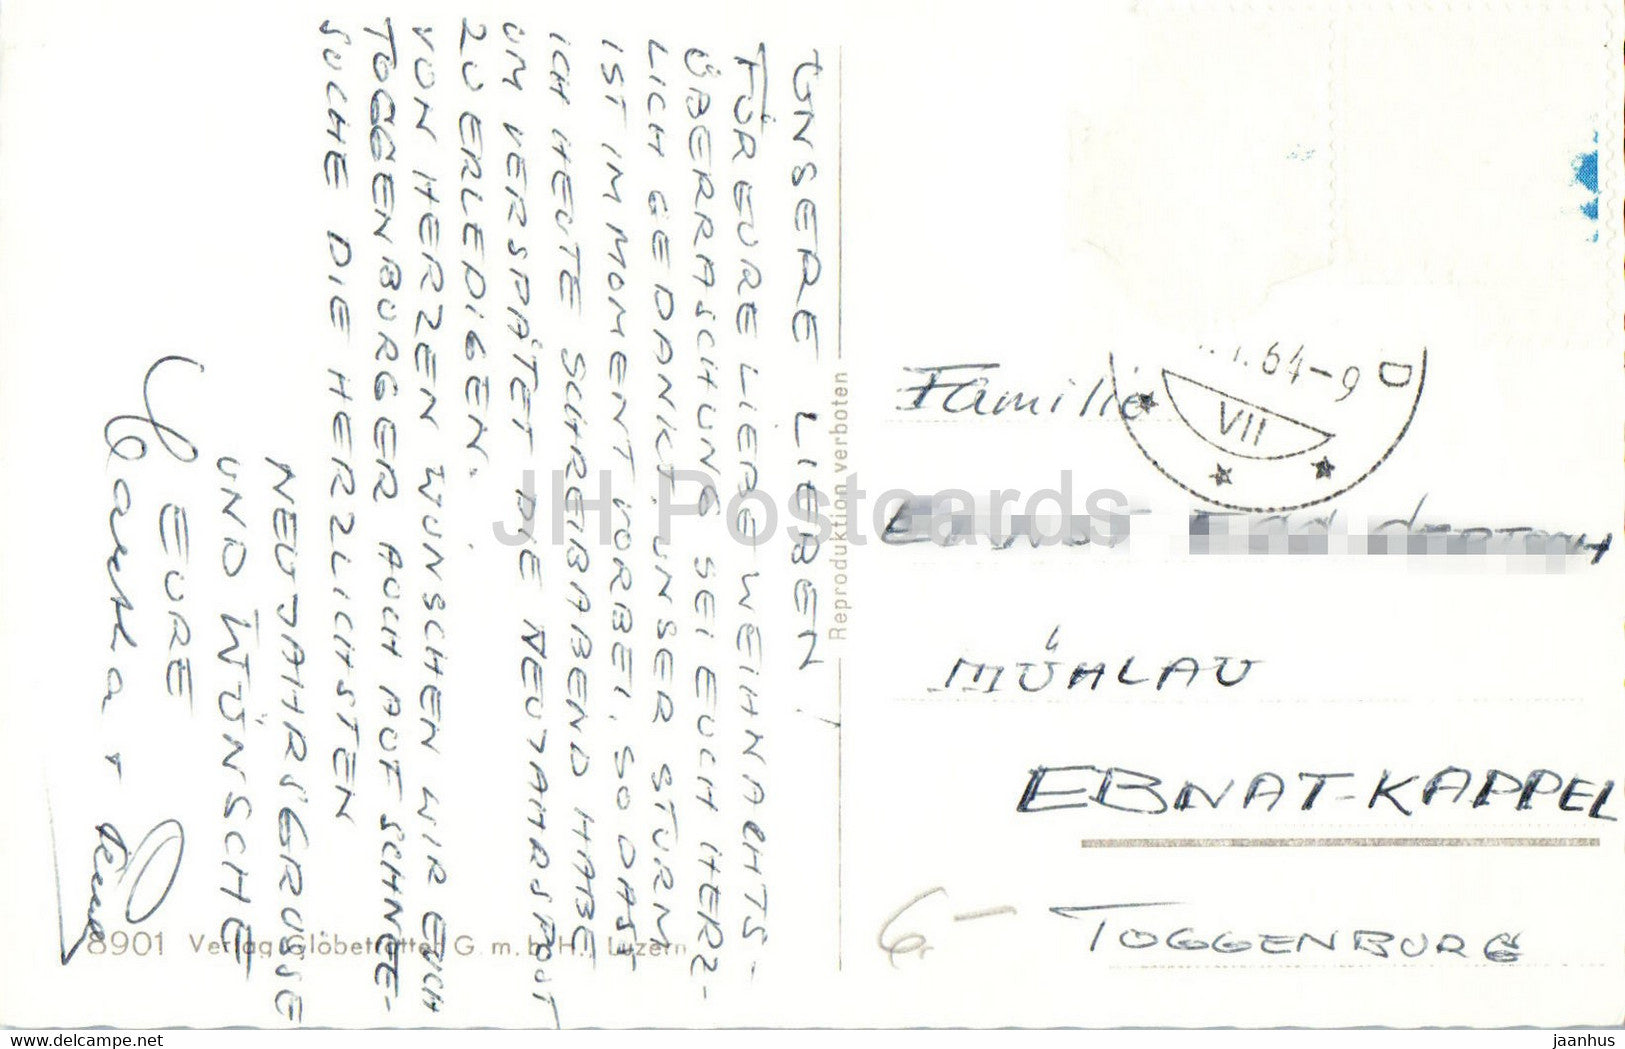 UNSERE LIEBEN!
FÜR EURE LIEBE WEIHNACHTS-
ÜBERRASCHUNG SEI EUCH HERZ-
LICH GEDANKT. UNSER STURM
IST IM MOMENT VORBEI, SO DASS
ICH HEUTE SCHREIBABEND HABE
UM VERSPÄTET DIE NEUJAHRSPOST
ZU ERLEDIGEN.
VON HERZEN WÜNSCHEN WIR EUCH
TOGGENBURGER AUCH AUF SCHNEE-
SUCHE DIE HERZLICHSTEN
NEUJAHRSGRÜSSE
UND WÜNSCHE
EURE
Reproduktion verboten
8901 Verlag Globetrotter G. m. b. H., Luzern
Familie
MÜHLAU
EBNAT-KAPPEL
TOGGENBURG
6.-
64-9
VII
JH Postcards
delcampe.net
jaanhus